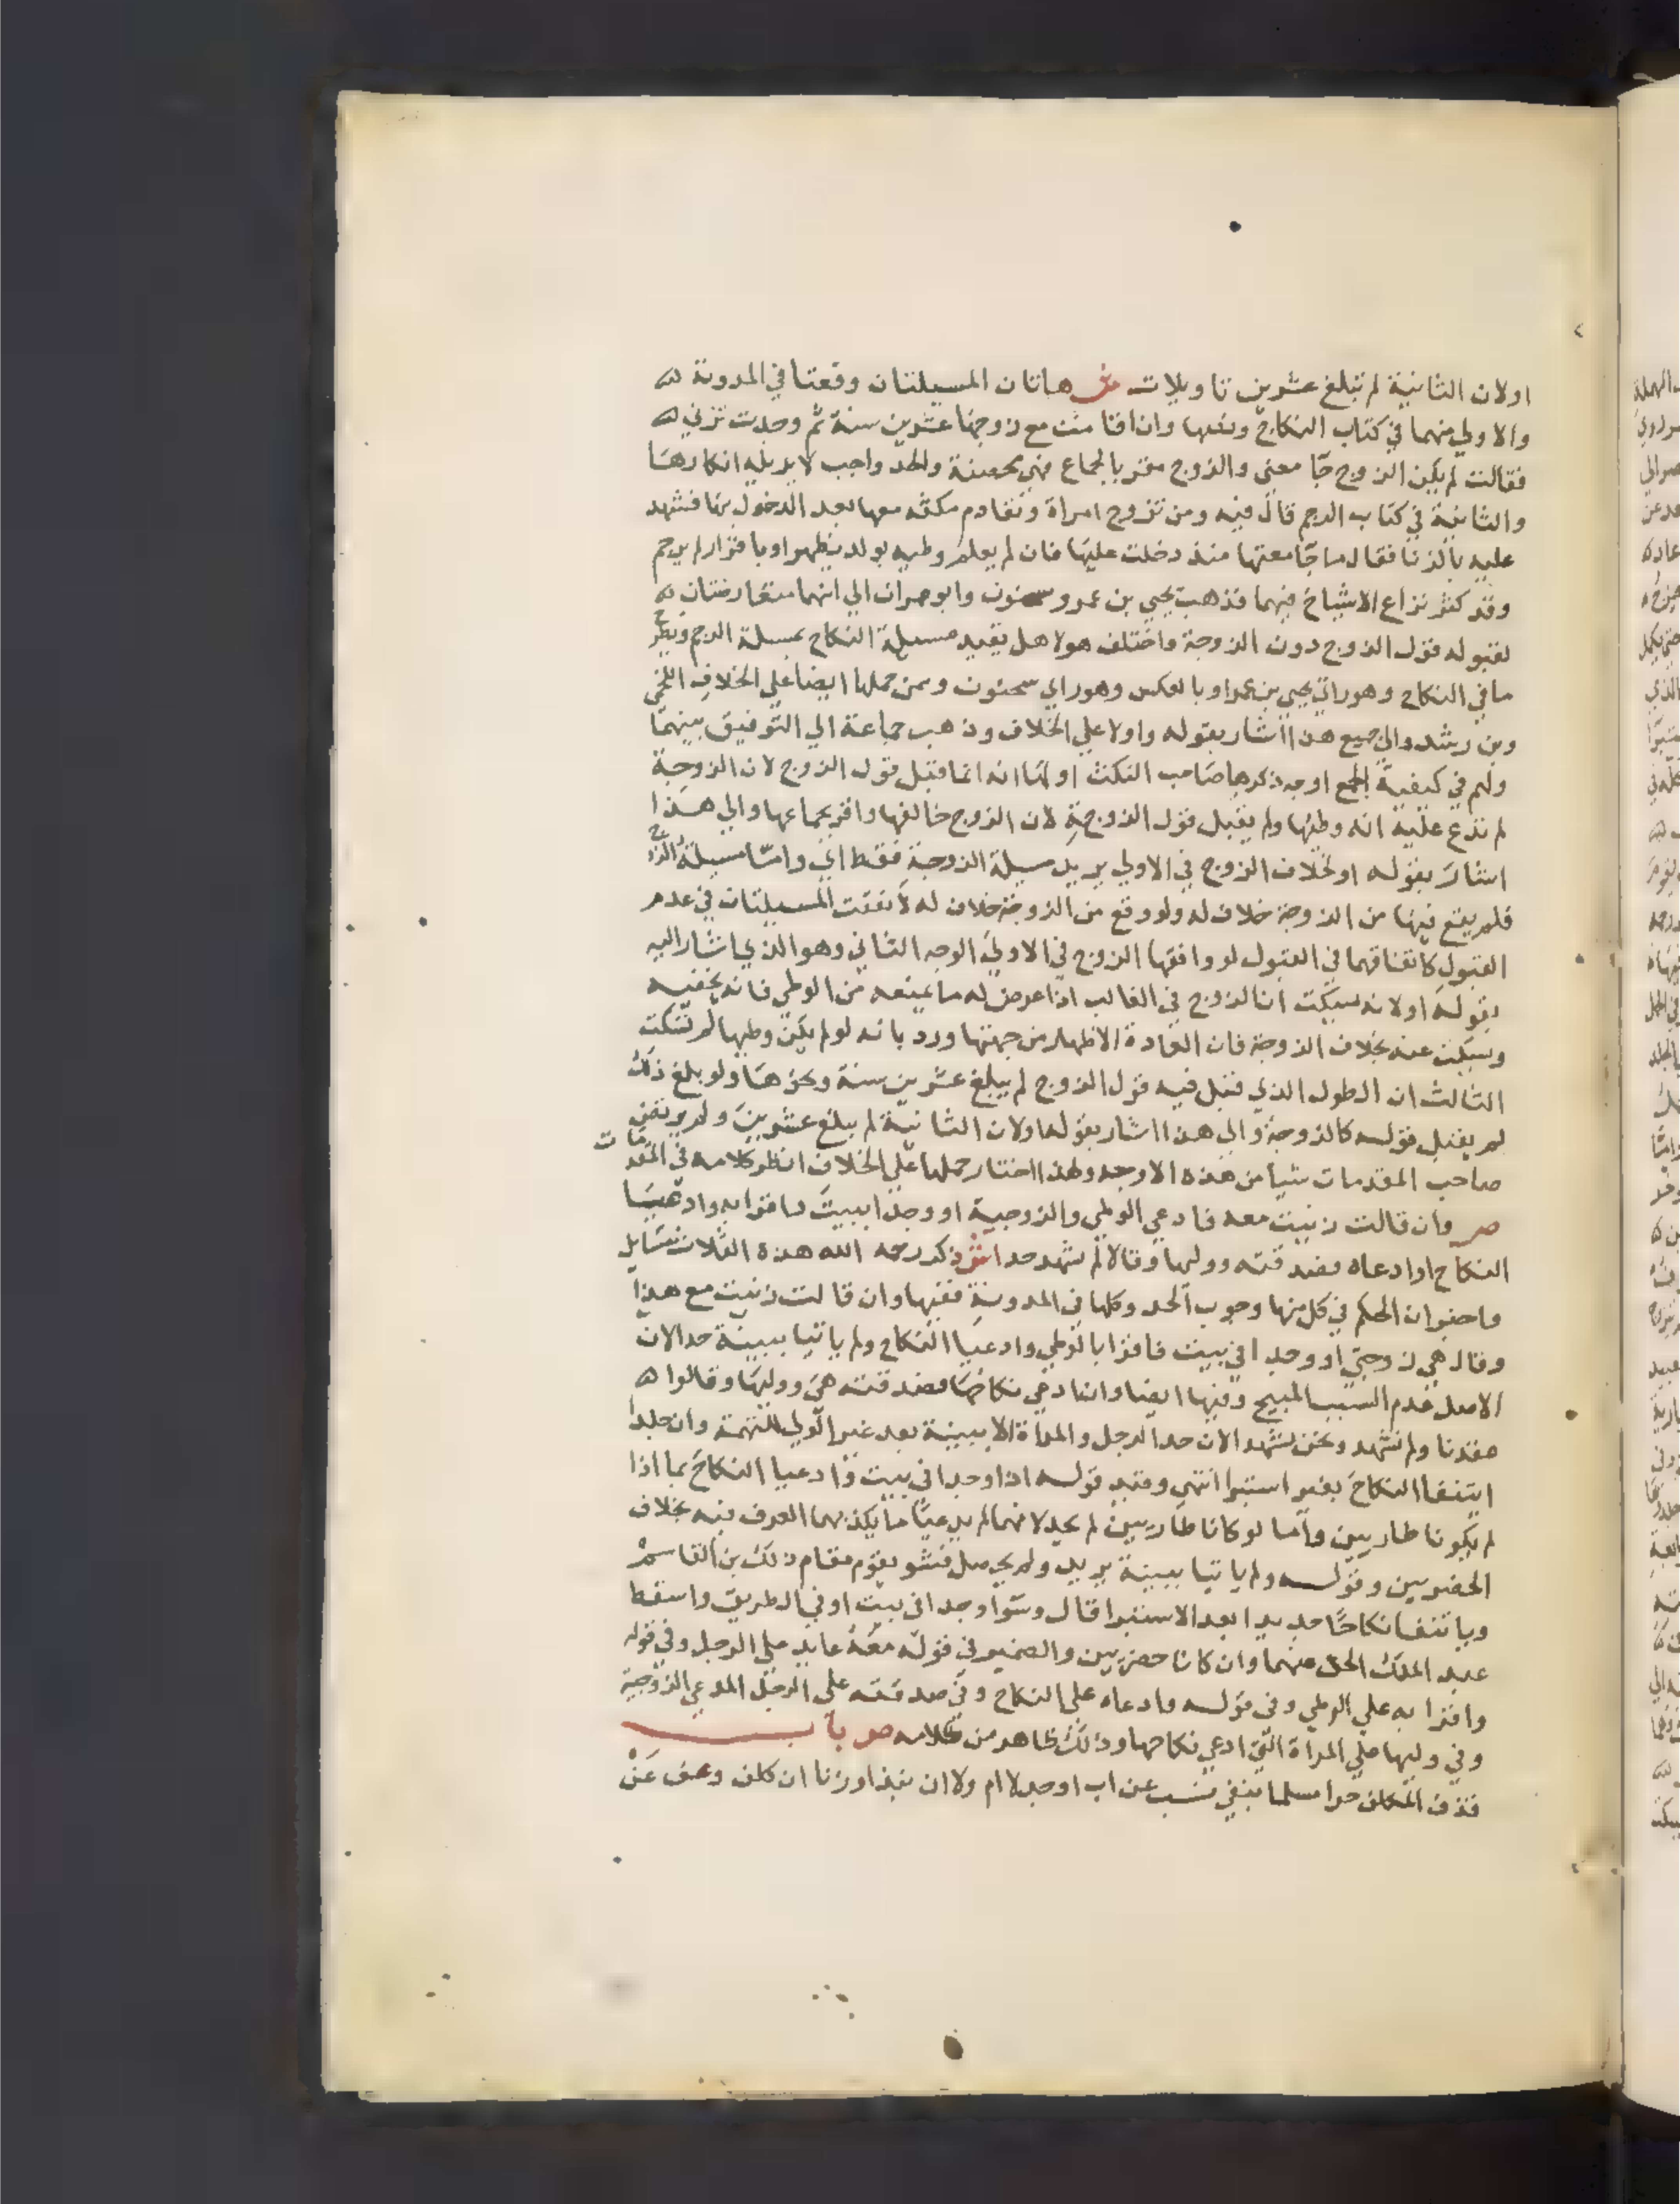 اولان الثانية لم تبلغ عشرين تاويلات ش هاتان المسيلتان وقعتا في المدونة
والاولي منهما في كتاب النكاح ونصها وان اقامت مع زوجها عشرين سنة ثم وجدت تزني
فقالت لم يكن الزوج جامعني والزوج مقر بالجماع فهي محصنة والحد واجب لا يزيله انكارها
والثانية في كتاب الرجم قال فيه ومن تزوج امراة وتقادم مكثه معها بعد الدخول بها فشهد
عليه بالزنا فقال ما جامعتها منذ دخلت عليها فان لم يعلم وطيه بولد يظهر او باقرار لم يرجم
وقد كثر نزاع الاشياخ فيهما فذهب يحيي بن عمر وسحنون وابو عمران الي انهما متعارضتان
لقبوله قول الزوج دون الزوجة واختلف هولا هل يقيد مسيلة النكاح بمسيلة الرجم ويطرح
ما في النكاح وهو راي يحيي بن عمر او بالعكس وهو راي سحنون وممن حملها ايضا علي الخلاف اللخمي
وبن رشد والي جميع هذا اشار بقوله واولا علي الخلاف وذهب جماعة الي التوفيق بينهما
ولهم في كيفية الجمع اوجه ذكرها صاحب النكت اولها انه انما قبل قول الزوج لان الزوجة
لم تدع عليه انه وطيها ولم يقبل قول الزوجة لان الزوج خالفها واقر بجماعها والي هذا
اشار بقوله او لخلاف الزوج في الاولي يريد مسيلة الزوجة فقط اي واما مسيلة الزوج
فلم يقع فيها من الزوجة خلاف له ولو وقع من الزوجة خلاف له لاتفقت المسيلتان في عدم
القبول كاتفاقهما في القبول لو وافقها الزوج في الاولي الوجه الثاني وهو الذي اشار اليه
بقوله اولانه يسكت ان الزوج في الغالب اذا عرض له ما يمنعه من الوطي فانه يخفيه
ويسكت عنه بخلاف الزوجة فان العادة الاظهار من جهتها ورد بانه لو لم يكن وطيها لم تسكت
الثالث ان الطول الذي قبل فيه قول الزوج لم يبلغ عشرين سنة ونحوها ولو بلغ ذلك
لم يقبل قوله كالزوجة والي هذا اشار بقوله اولان الثانية لم يبلغ عشرين ولم يرتض
صاحب المقدمات شيا من هذه الاوجه ولهذا اختار حملها علي الخلاف انظر كلامه في المقدمات
ص وان قالت زنيت معه فادعي الوطي والزوجية او وجدا ببيت واقرا به وادعيا
النكاح او ادعاه وصدقته ووليها وقالا لم نشهد حدا ش ذكر رحمه الله هذه الثلاث مسايل
واخبر ان الحكم في كل منها وجوب الحد وكلها في المدونة ففيها وان قالت زنيت مع هذا
وقال هي زوجتي او وجدا في بيت فاقرا بالوطي وادعيا النكاح ولم ياتيا ببينة حدا لان
الاصل عدم السبب المبيح وفيها ايضا وان ادعي نكاحها وصدقته هي ووليها وقالوا
عقدنا ولم نشهد ونحن نشهد الان حد الرجل والمراة الا ببينة بعد غير الولي للتهمة وان جلدا
ايتنفا النكاح بغير استبرا انتهي وقيد قوله اذا وجدا في بيت وادعيا النكاح بما اذا
لم يكونا طاريين واما لو كانا طاريين لم يحدا لانهما لم يدعيا ما يكذبهما العرف فيه بخلاف
الحضريين وقوله ولم ياتيا ببينة يريد ولم يحصل فشو يقوم مقام ذلك بن القاسم
وياتنفا نكاحا جديدا بعد الاستبرا قال وسوا وجدا في بيت او في الطريق واسقط
عبد الملك الحد عنهما وان كانا حضريين والضمير في قوله معه عايد علي الرجل وفي قوله
واقرا به علي الوطي وفي قوله وادعاه علي النكاح وفي صدقته علي الرجل المدعي الزوجية
وفي وليها علي المراة التي ادعي نكاحها وذلك ظاهر من كلامه ص باب
قذف المكلف حرا مسلما بنفي نسب عن اب او جد لا ام ولا ان نبذ او زنا ان كلف وعف عن